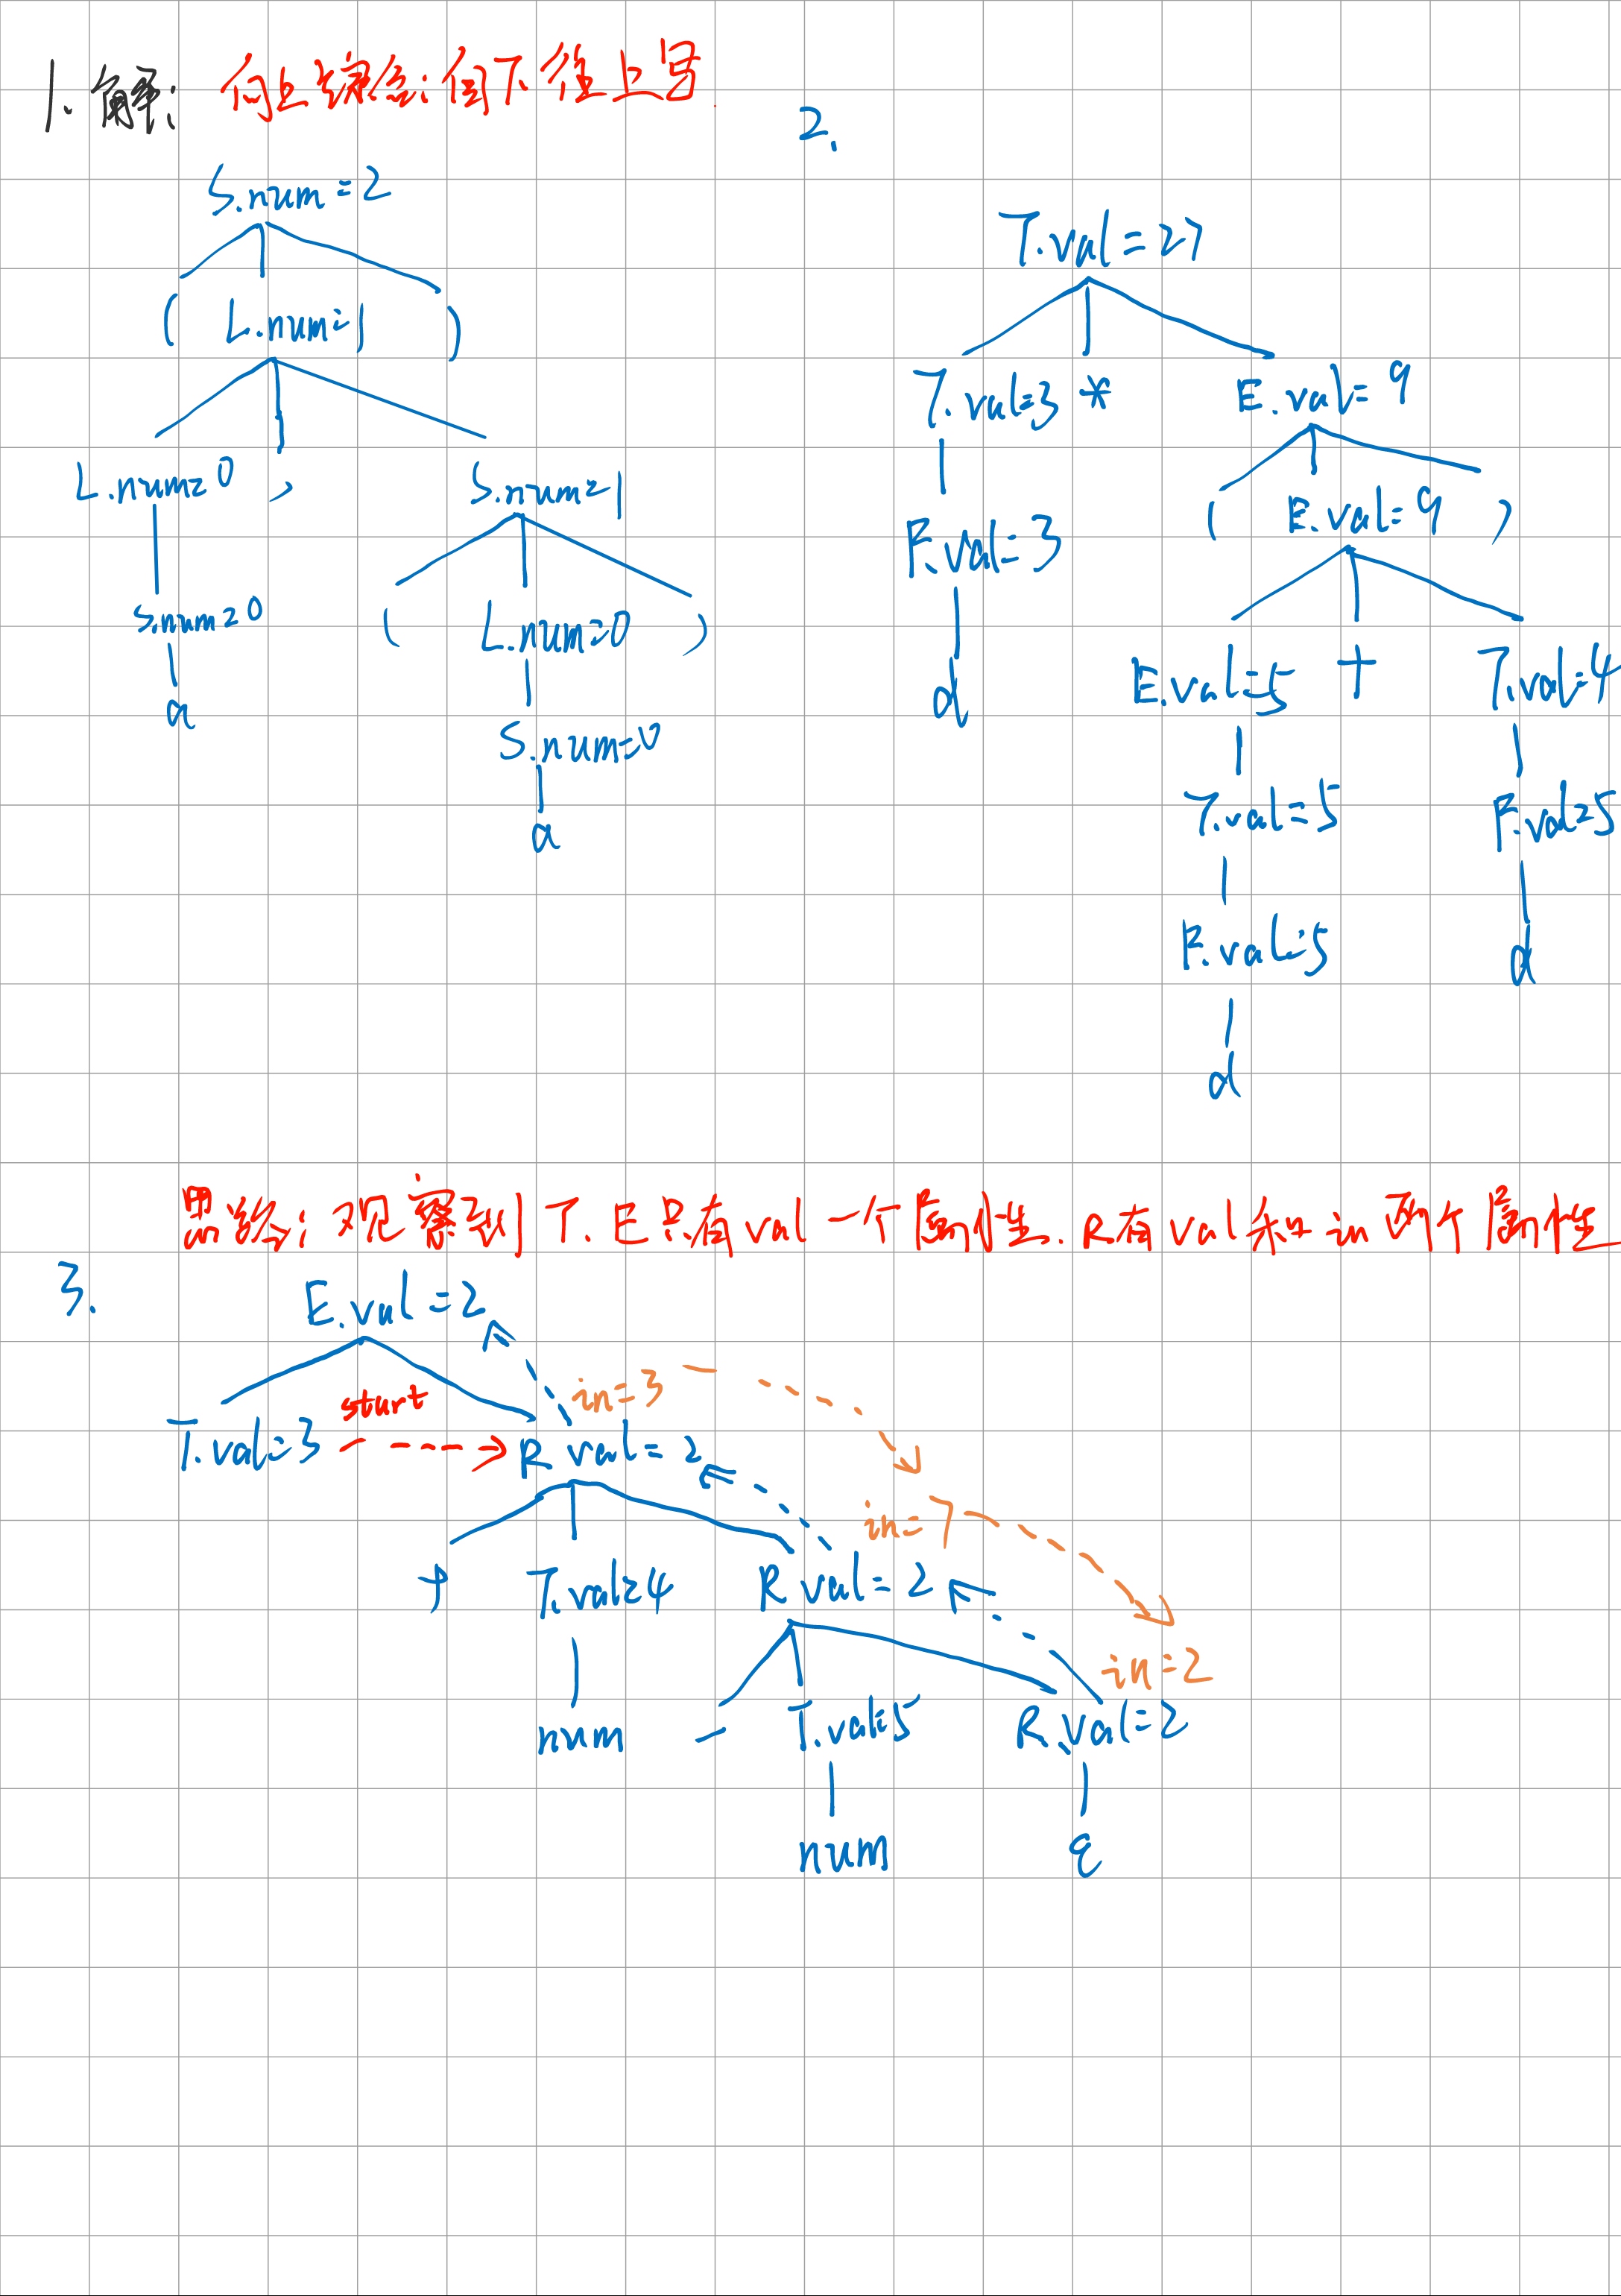 1.解: 向上综合:自下往上写.
S.num=2
( L.num=1 )
L.num=0 , S.num=1
S.num=0 ( L.num=0 )
a
S.num=0
a
2.
T.val=27
T.val=3 * E.val=9
F.val=3 ( E.val=9 )
d E.val=5 + T.val=4
T.val=5 F.val=5
F.val=5 d
d
思络:观察到T.E只有val一个属性.R有val和in两个属性
3.
E.val=2
in=3
start
T.val=3 R.val=2
in=7
+ T.val=4 R.val=2
in=2
num - T.val=5 R.val=2
num ε